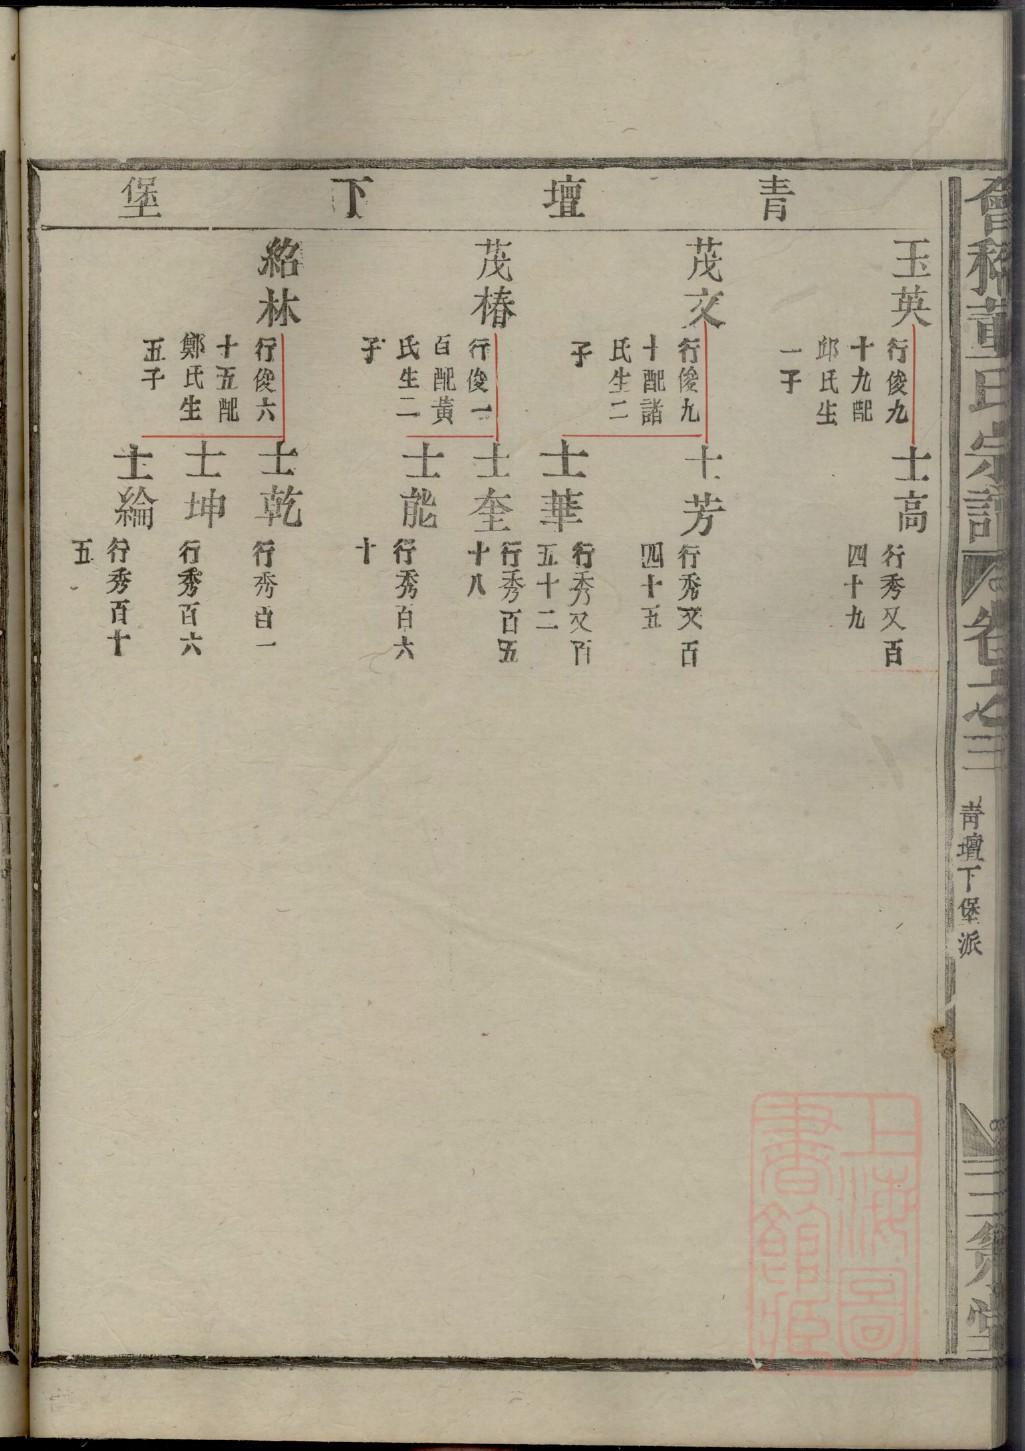 青壇下堡
玉英
行俊九
十九配
邱氏生
一子
茂文
行俊九
十配諸
氏生二
子
茂椿
行俊一
百配黃
氏生二
子
紹林
行俊六
十五配
鄭氏生
五子
士高
行秀又百
四十九
士芳
行秀又百
四十五
士華
行秀又百
五十二
士奎
行秀百五
十八
士能
行秀百六
十
士乾
行秀百一
士坤
行秀百六
士綸
行秀百十
五
會稽董氏宗譜
卷之三
青壇下堡派
三策堂
上海圖
書館藏